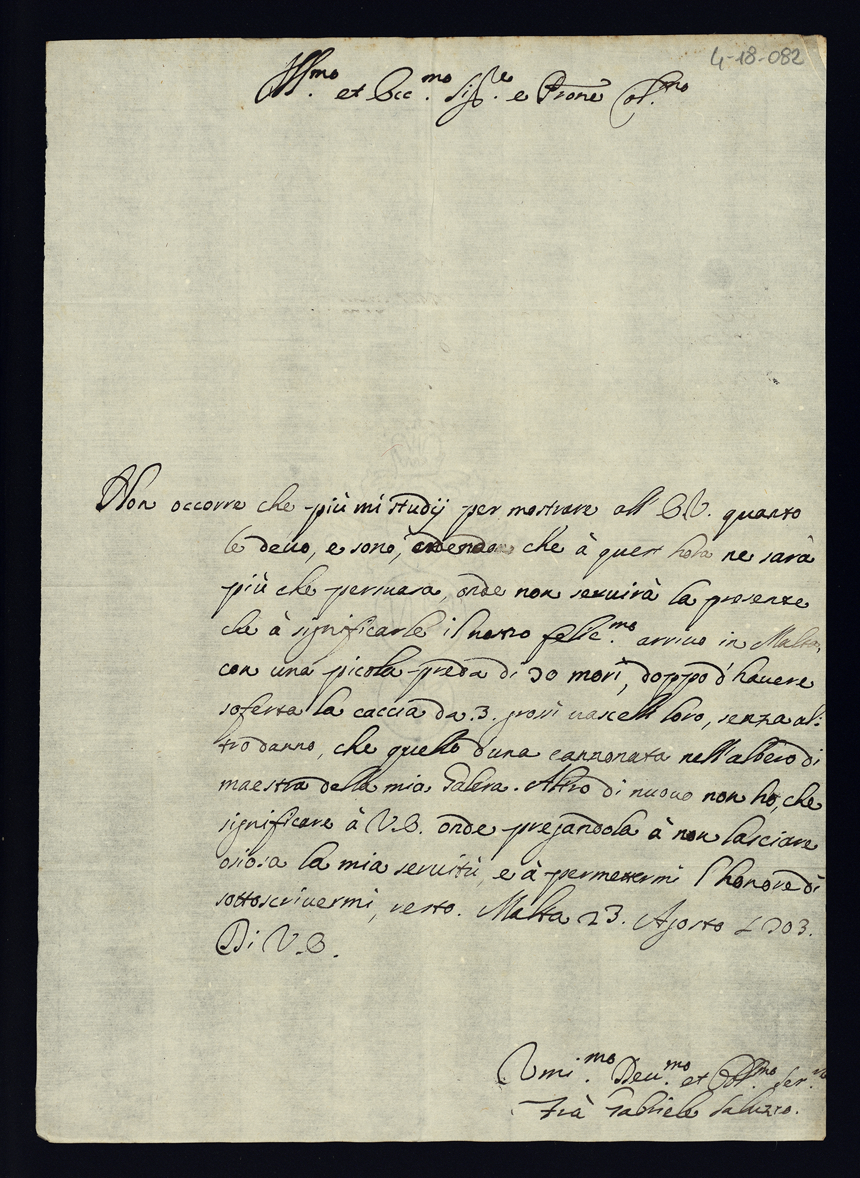 4-18-082
Ill.mo et Ecc.mo Sig.re e Prone Col.mo
Non occorre che più mi studij per mostrare all' E.V. quanto
le deuo, e sono, credendo che à quest' hora ne sarà
più che persuasa, onde non seruirà la presente
che à significarle il nostro felic.mo arriuo in Malta,
con una picola preda di 30 mori, doppo d'hauere
soferta la caccia da .3. grossi uascelli loro, senza al:
tro danno, che quello d'una cannonata nell'albero di
maestra della mia Galera. Altro di nuouo non hò, che
significare à V.E. onde pregandola à non lasciare
oziosa la mia seruitù, e à permettermi l'honore di
sottoscriuermi, resto. Malta 23. Agosto 1703.
Di V.E.
Vmi.mo Deu.mo et Obl.mo Ser.re
Frà Gabriele Saluzzo.